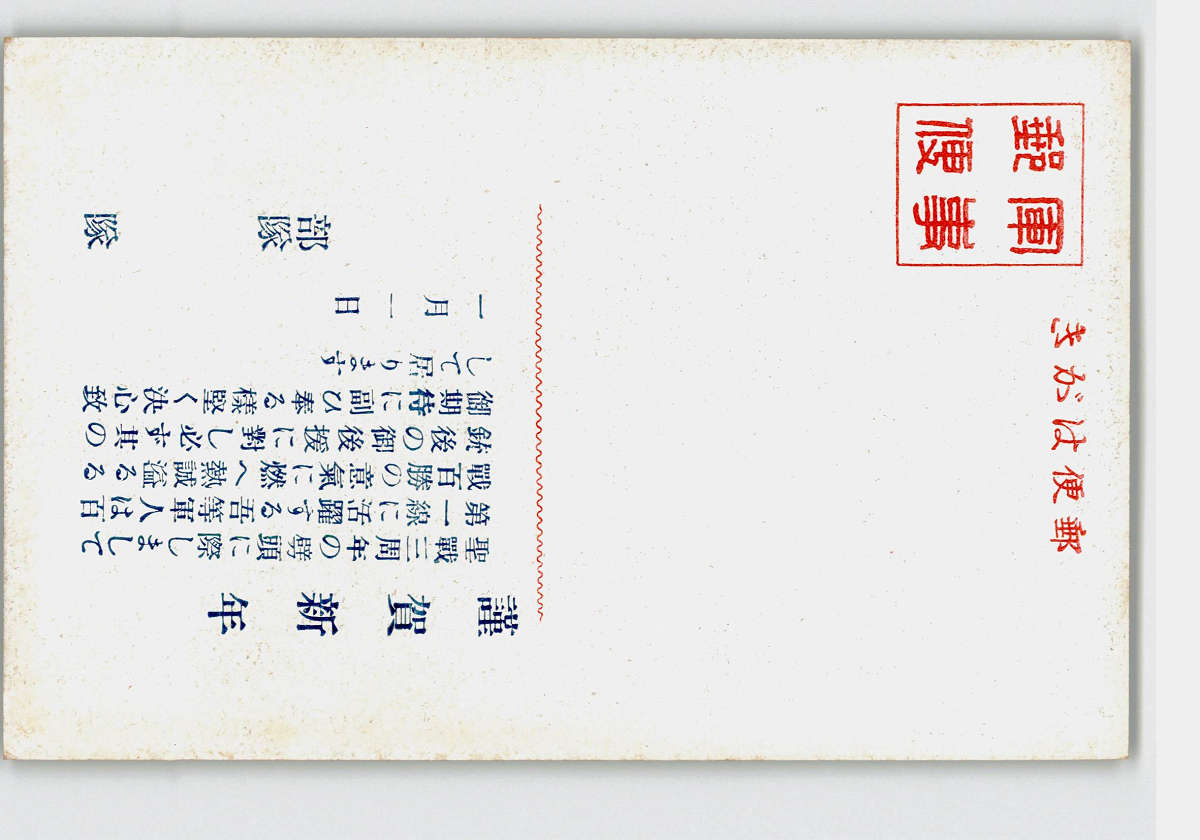 郵便はがき
軍事
郵便
謹賀新年
聖戰三周年の劈頭に際しまして
第一線に活躍する吾等軍人は百
戰百勝の意氣に燃へ熱誠溢るる
銃後の御後援に對し必ず其の
御期待に副ひ奉る樣堅く決心致
して居ります
一月一日
部隊　　　隊